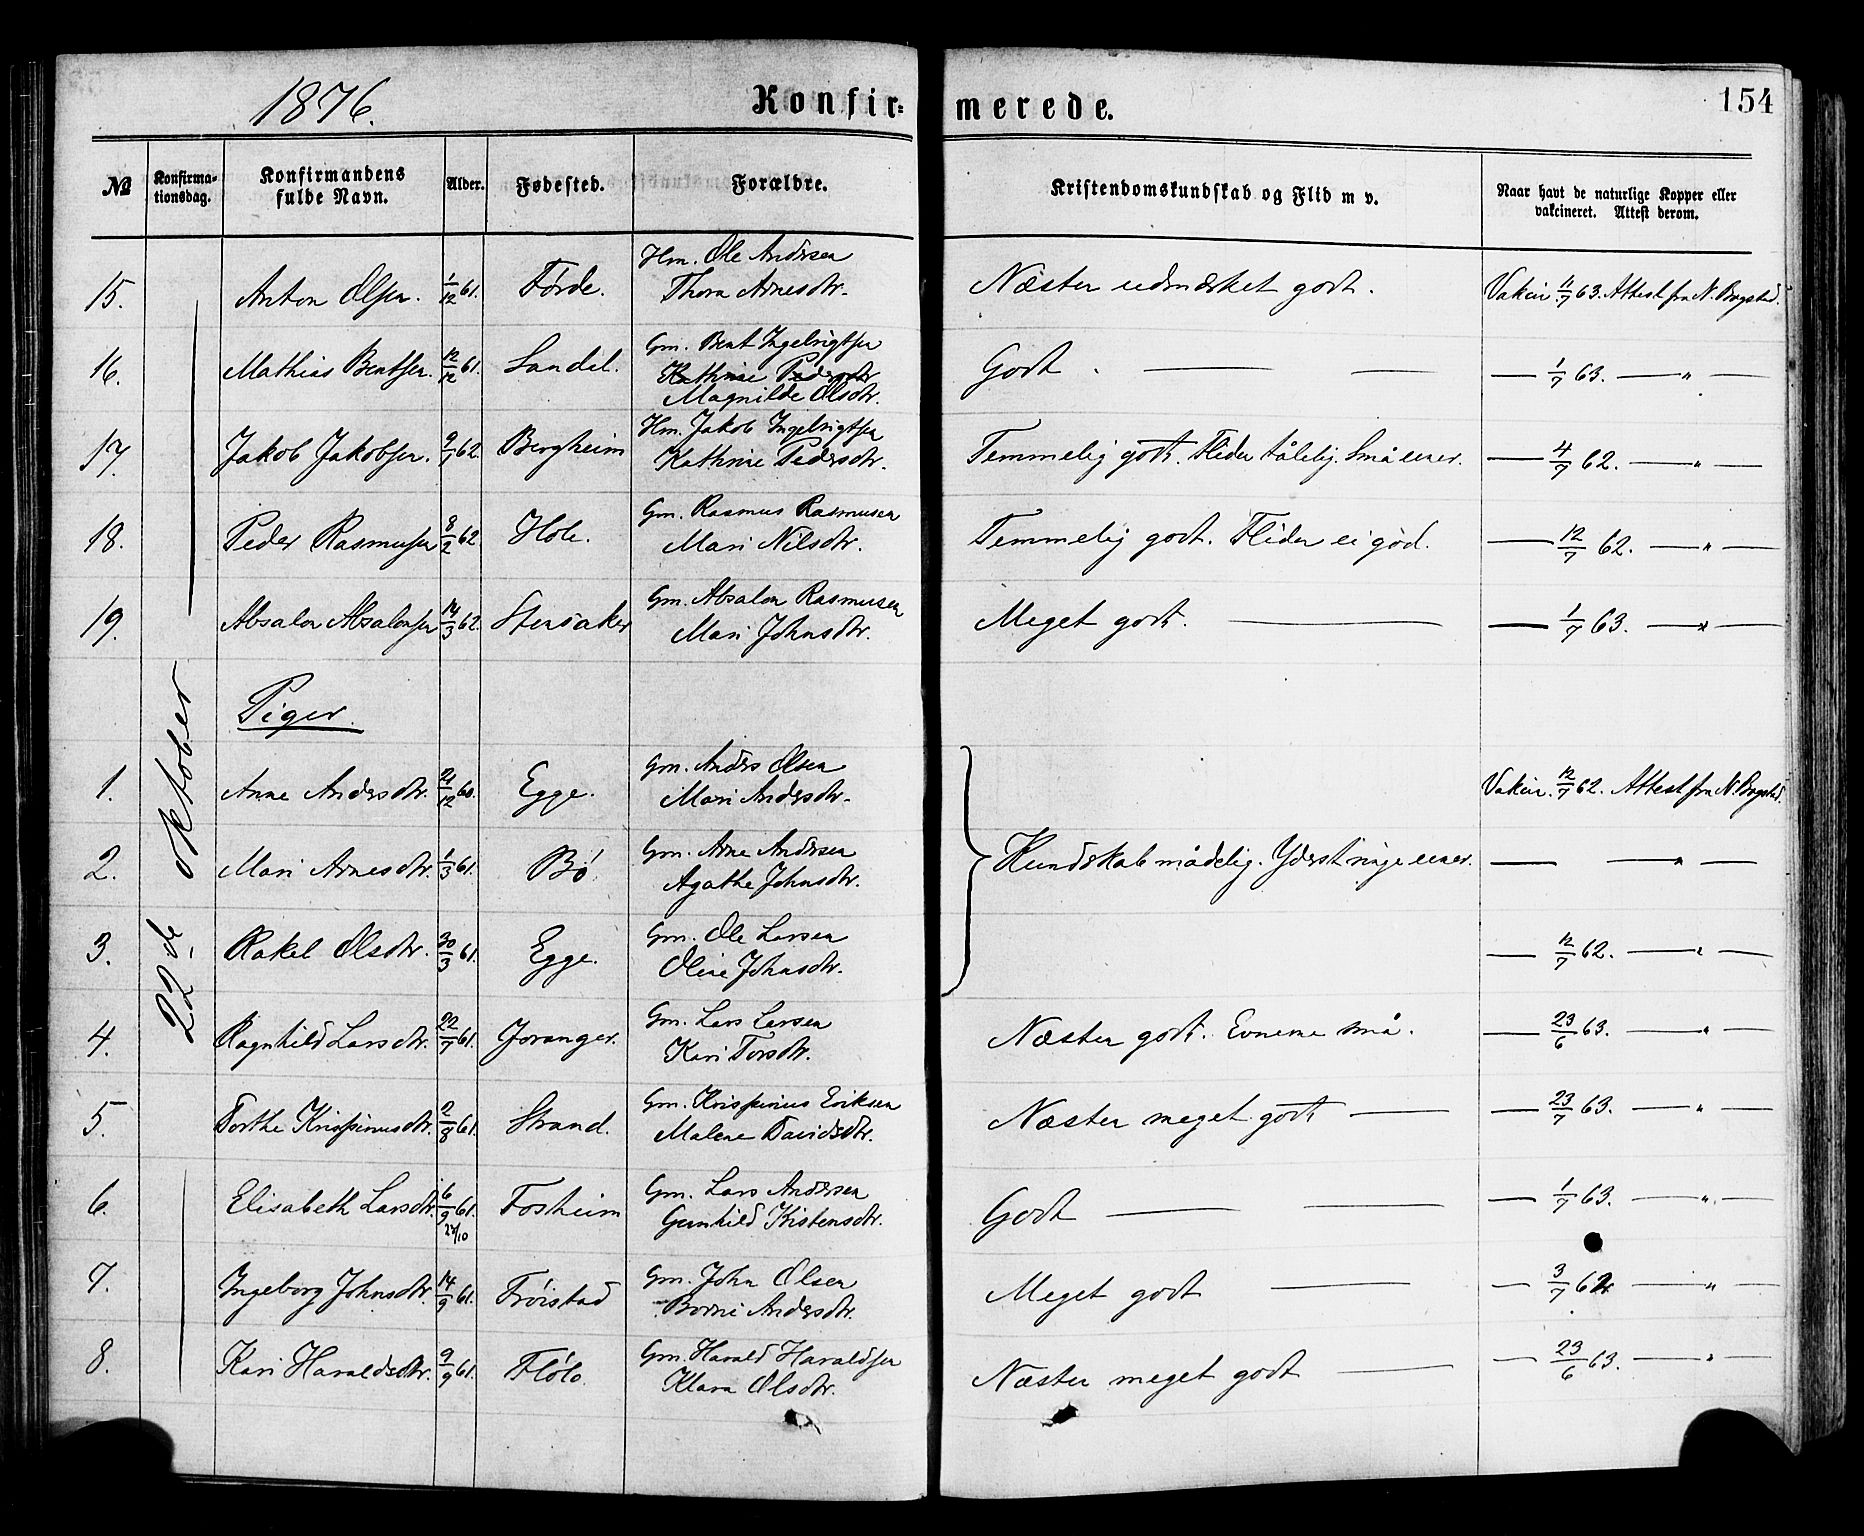 1876.
Konfir-
merede.
154
№
Konfirma-
tionsdag.
Konfirmandens
fulde Navn.
Alder.
Fødested.
Forældre.
Kristendomskundskab og Flid m v.
Naar havt de naturlige Kopper eller
vakcineret. Attest derom.
22de oktober
15. Anton Olsen. 1/12 61. Førde. Hm. Ole Andersen
Thora Arnesdtr. Næsten udmærket godt. Vakcin. 11/7 63. Attest fra N. Bogstad.
16. Mathias Bentsen. 12/12 61. Sandal. Gm. Bent Ingebrigtsen
Kathrine Pedersdtr
Magnilde Olsdtr. Godt. — — — 1/7 63. — " —
17. Jakob Jakobsen. 9/1 62. Bergheim Hm. Jakob Ingebrigtsen
Kathrine Pedersdtr. Temmelig godt. Fliden tålelig. Små evner. — 4/7 62. — " —
18. Peder Rasmusen 8/2 62. Hole. Gm. Rasmus Rasmusen
Mari Nilsdtr. Temmelig godt. Fliden ei god. — 12/7 62. — " —
19. Absalon Absalonsen 14/3 62. Stensaker Gm. Absalon Rasmusen
Mari Johnsdtr. Meget godt. — — 1/7 63. — " —
Piger.
1. Anne Andersdtr. 21/12 60. Egge. Gm. Anders Olsen
Mari Andersdtr. Vakcin. 12/7 62. Attest fra N. Bogstad.
2. Mari Arnesdtr. 1/3 61. Bø. Gm. Arne Andersen
Agathe Johnsdtr. Kundskab mådelig. Yderst ringe evner. — — " —
3. Rakel Olsdtr. 30/3 61. Egge. Gm. Ole Larsen
Oline Johnsdtr. — 12/7 62. — " —
4. Ragnhild Larsdtr. 22/7 61. Joranger. Gm. Lars Larsen
Kari Torsdtr. Næsten godt. Evnerne små. — 23/6 63. — " —
5. Dorthe Krispinusdtr. 2/8 61. Strand. Gm. Krispinus Eriksen
Malene Davidsdtr. Næsten meget godt — — 23/7 63. — " —
6. Elisabeth Larsdtr. 6/9 61. 24/10 Fosheim Gm. Lars Andersen
Gunhild Kristensdtr. Godt — — — 1/7 63. — " —
7. Ingeborg Johnsdtr. 14/9 61. Frøistad Gm. John Olsen
Borni Andersdtr. Meget godt — — 3/7 62 — " —
8. Kari Haraldsdtr. 9/9 61. Fløló. Gm. Harald Haraldsen
Klara Olsdtr. Næsten meget godt — — 23/6 63. — " —